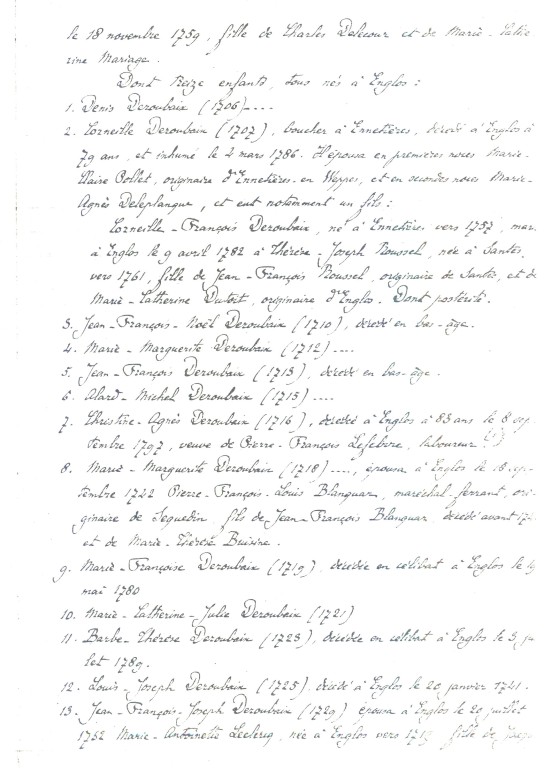 le 18 novembre 1759, fille de Charles Delecour et de Marie-Cathe
rine Mariage.
Dont treize enfants, tous nés à Englos :
1. Denis Deroubaix (1706)----
2. Corneille Deroubaix (1707), boucher à Ennetières, décédé à Englos à
79 ans, et inhumé le 2 mars 1786. Il épousa en premières noces Marie-
Claire Pollet, originaire d'Ennetières-en Weppes, et en secondes noces Marie-
Agnès Deleplanque, et eut notamment un fils :
Corneille-François Deroubaix, né à Ennetières vers 1757, mar
à Englos le 9 avril 1782 à Thérèse-Joseph Roussel, née à Santes,
vers 1761, fille de Jean-François Roussel, originaire de Santes, et de
Marie-Catherine Dutoit, originaire d'Englos. Dont postérité.
3. Jean-François-Noël Deroubaix (1710), décédé en bas-âge.
4. Marie-Marguerite Deroubaix (1712)----
5. Jean-François Deroubaix (1713), décédé en bas-âge.
6. Alard-Michel Deroubaix (1715)----
7. Christine-Agnès Deroubaix (1716), décédée à Englos à 83 ans le 8 sep
tembre 1797, veuve de Pierre-François Lefebvre, laboureur (1)
8. Marie-Marguerite Deroubaix (1718)----, épousa à Englos le 18 sep
tembre 1742 Pierre-François-Louis Blanquar, maréchal-ferrant, ori-
ginaire de Sequedin fils de Jean-François Blanquar décédé avant 174
et de Marie-Thérèse Buisine.
9. Marie-Françoise Deroubaix (1719), décédée en célibat à Englos le
mai 1780
10. Marie-Catherine-Julie Deroubaix (1721)
11. Barbe-Thérèse Deroubaix (1723), décédée en célibat à Englos le 5 ju
let 1789.
12. Louis-Joseph Deroubaix (1725), décédé à Englos le 20 janvier 1741.
13. Jean-François-Joseph Deroubaix (1729) épousa à Englos le 20 juillet
1752 Marie-Antoinette Leclercq, née à Englos vers fille de